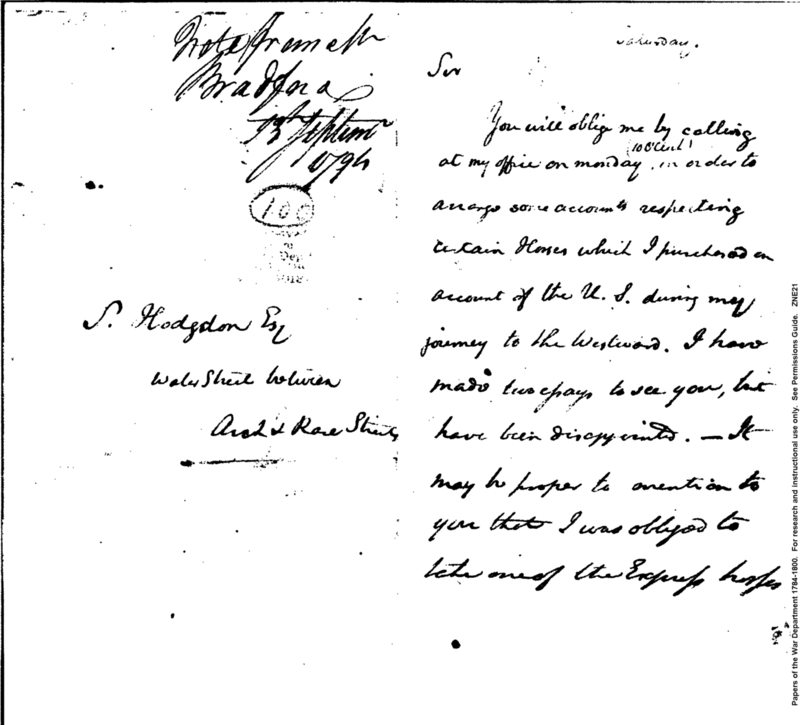 Note from
Bradford
13th Septemr
1794
100
S. Hodgdon Esq
Water Street between
Arch & Race Streets
Saturday.
Sir
You will oblige me by calling
at my office on monday (10 oClock) in order to
arrange some accounts respecting
certain Horses which I purchased on
account of the U. S. during my
journey to the Westward. I have
made two essays to see you, but
have been disappointed. — It
may be proper to mention to
you that I was obliged to
take one of the Express horses
Papers of the War Department 1784-1800. For research and instructional use only. See Permissions Guide. ZNE21